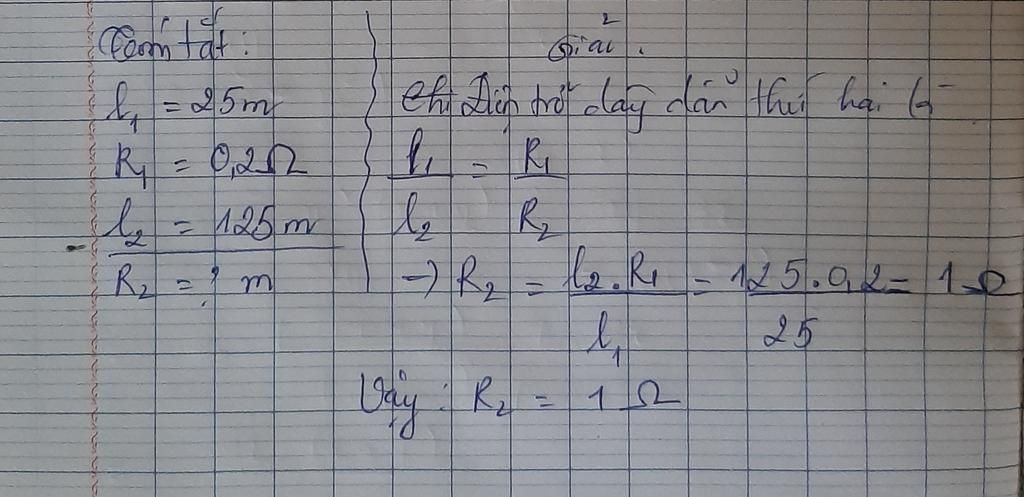 Tóm tắt:
l₁ = 25m
R₁ = 0,2Ω
l₂ = 125 m
R₂ = ? m
Giải.
Điện trở dây dẫn thứ hai là
l₁/l₂ = R₁/R₂
→ R₂ = l₂.R₁/l₁ = 125.0,2/25 = 1Ω
Vậy: R₂ = 1 Ω